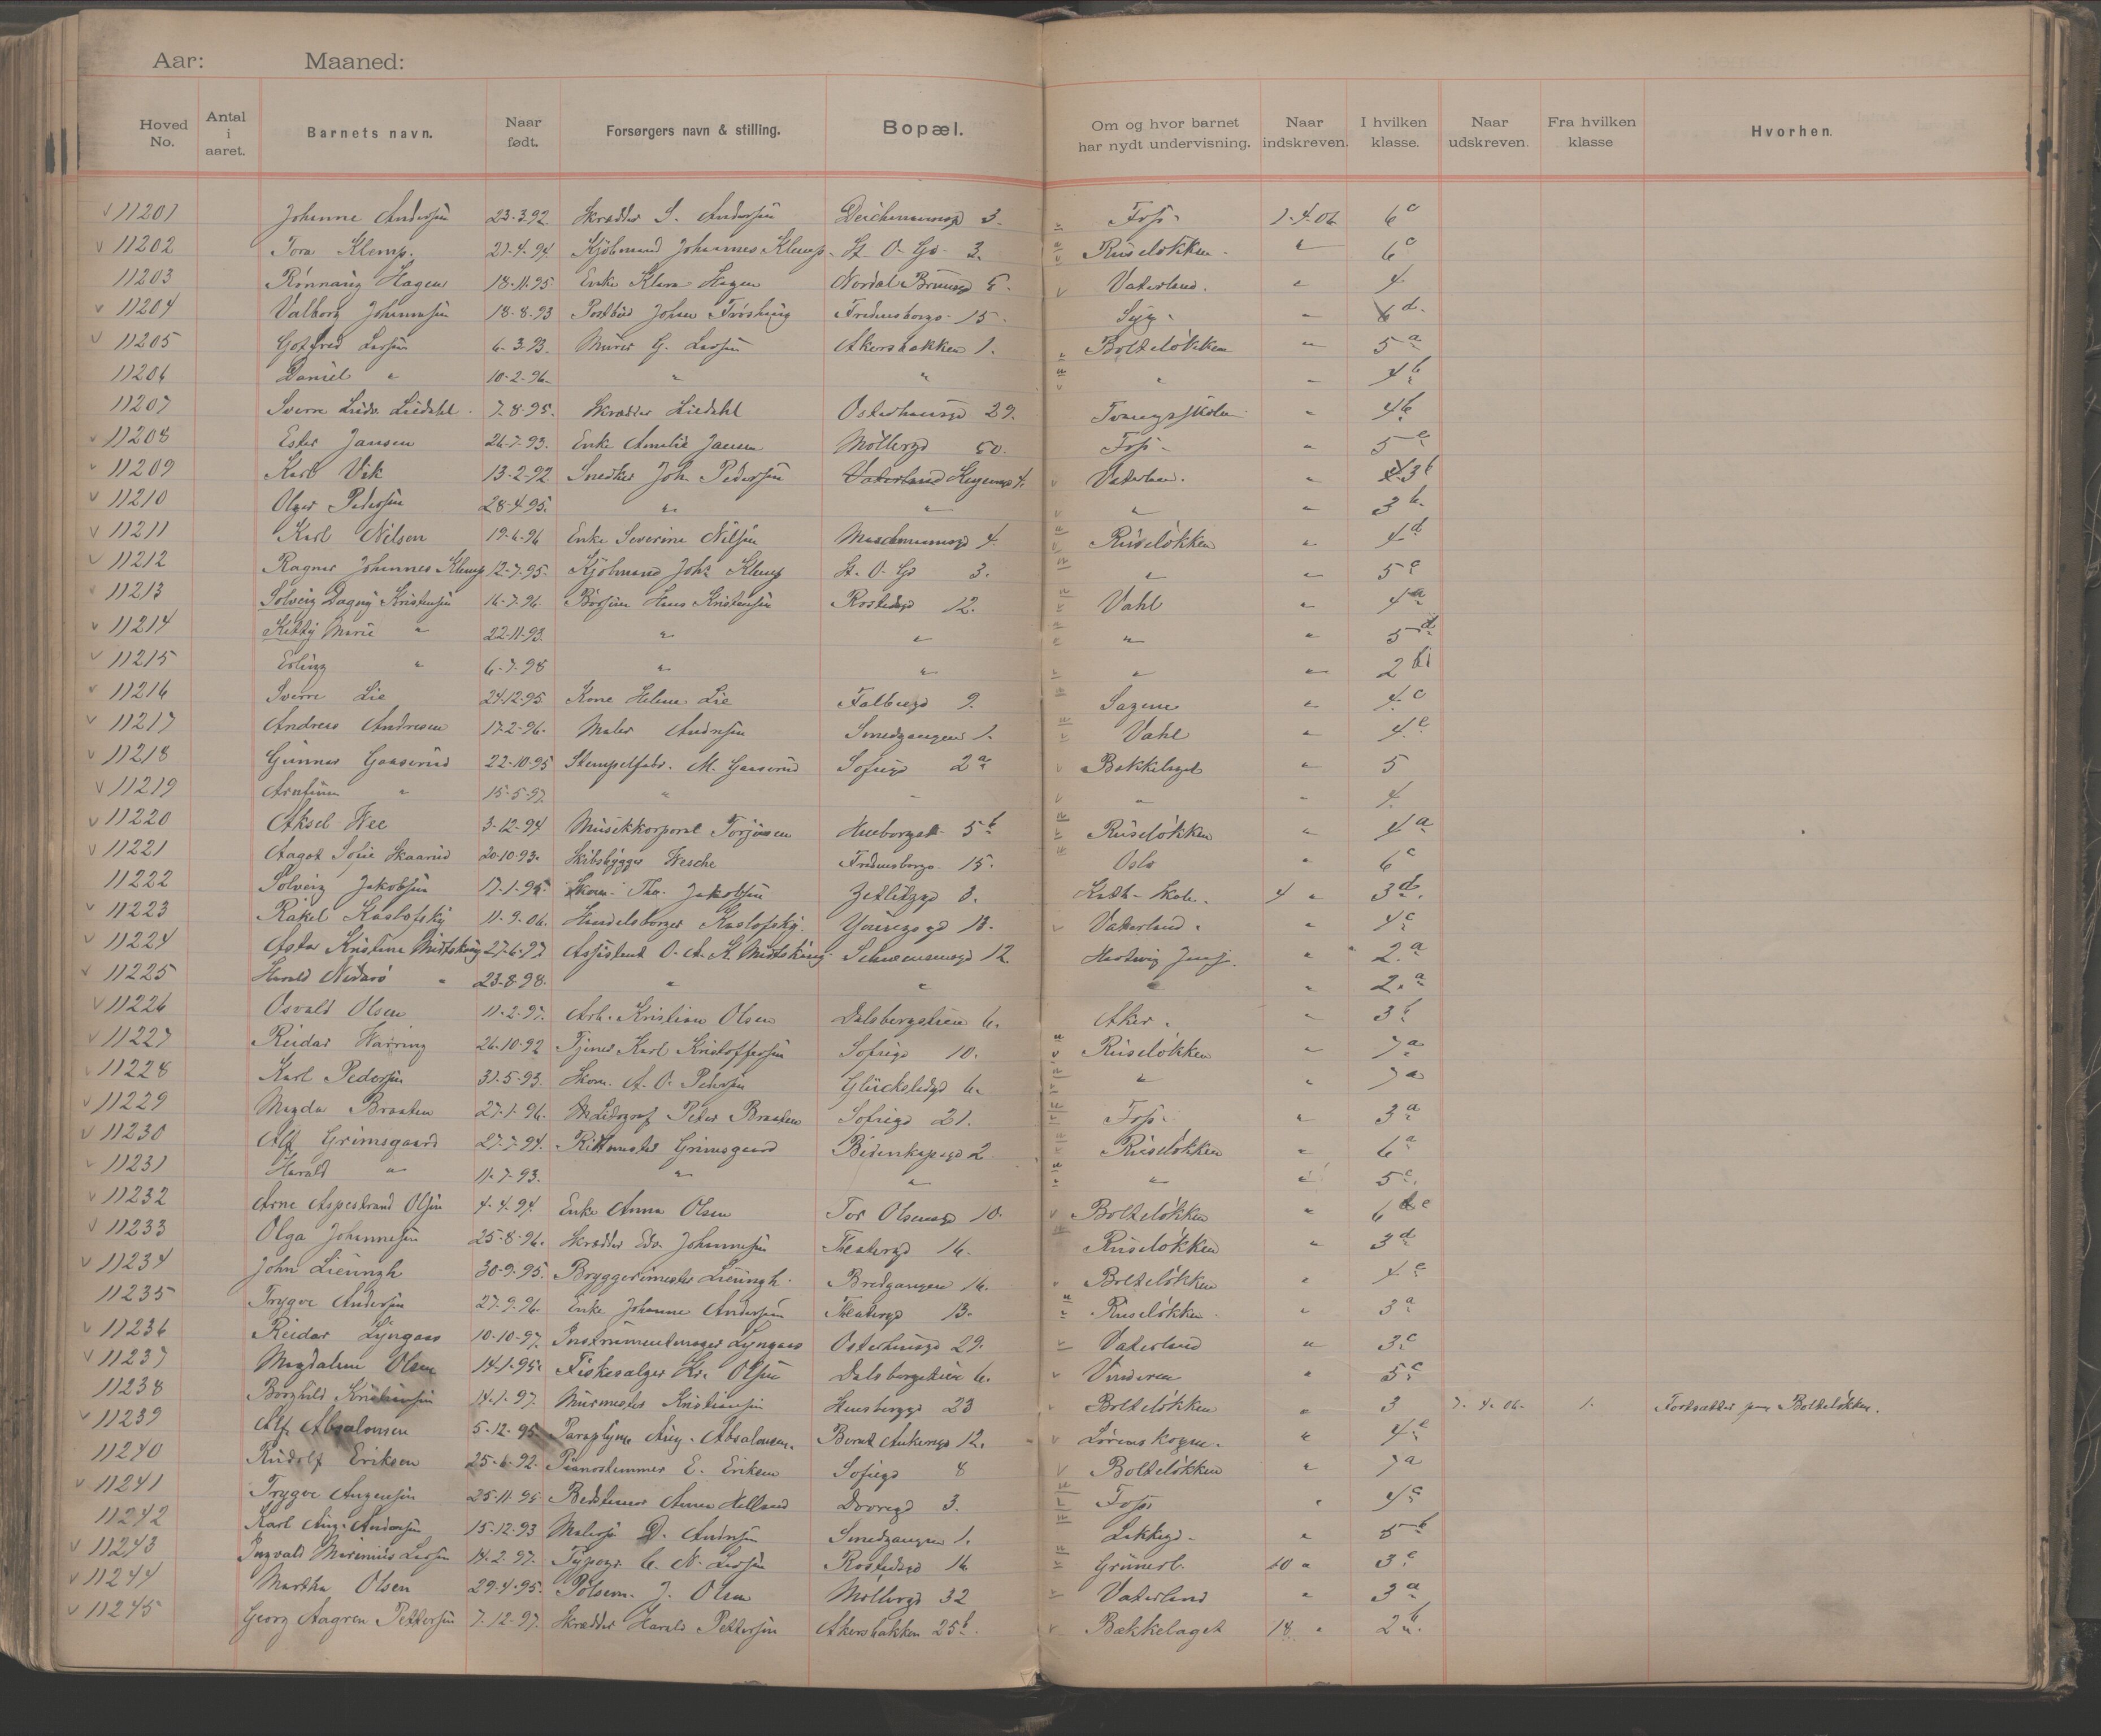 Aar: Maaned:
Hoved No. Antal i aaret. Barnets navn. Naar født. Forsørgers navn & stilling. Bopæl. Om og hvor barnet har nydt undervisning. Naar indskreven. I hvilken klasse. Naar udskreven. Fra hvilken klasse Hvorhen.
v 11201 Johanne Andersen 23-3.92. Skrædder S. Andersen Deichmannsgd 3. " Foss- 1-4.06 6c
v 11202 Tora Klemp. 21-4-94 Kjøbmand Johannes Klemp- St. O- Gd- 3. " Ruseløkken - " 6c
11203 Rønnaug Hagen 18-11-95 Enke Klara Hagen Nordal Brunsgd 5. v Vaterland. " 4.
v 11204 Valborg Johannsen 18-8-93 Postbud Johan Frøshaug Fredensborgv- 15. " 6d.
v 11205 Gotfred Larsen 6-3.93. Murer G. Larsen Akersbakken 1. " Bolteløkken " 5a
11206 Daniel " 10-2-96. " " " " " 4b
11207 Sverre Ludv. Liedahl. 7.8.95. Skrædder Liedahl Osterhausgd 29. Tvangsskolen " 4b
v 11208 Ester Jansen 26-7-93. Enke Amalie Jansen Møllergd 50. Foss- " 5c
" 11209 Karl Vik 13-2-92 Snedker Joh. Pedersen Vaterland 4. v Vaterlan. " 3b
v 11210 Olger Pedersen 28-4-95. " " v " " 3b.
v 11211 Karl Nilsen 19-6-96 Enke Severine Nilsen 4. " Ruseløkken " 4d
v 11212 Ragnar Johannes Klemp 12-7.95. Kjøbmand Johs Klemp St. O- Gd 3. " " " 5c
v 11213 Solveig Dagny Kristensen 16-7-96. Hans Kristensen Rostedsgd 12. " Vahl " 4a
v 11214 Kitty Marie " 22-11-93. " " " " " 5d
v 11215 Erling " 6-7-98 " " " " " 2b
v 11216 Sverre Lie 24-12-95 Kone Helene Lie Falbesgd 9. " Sagene " 4.c
v 11217 Andreas Andresen 17-2-96. Maler Andresen Smedgangen 1. " Vahl " 4.c
v 11218 Gunnar Gaaserud 22-10-95 Stempelfabr. M. Gaaserud Sofiegd 2a v Bækkelaget " 5
v 11219 " 15-5-97. " " v " " 4.
v 11220 Aksel Wee 3-12-94 Musikkorporal Torjussen 5b " Ruseløkken " 4a
v 11221 Aagot Sofie Skaarud 20-10-93. Skibsbygger Wesche Fredensborgv. 15. " Oslo " 6c
11222 Solveig Jakobsen 17-1-95. Skom. Th. Jakobsen Zetlitzgd 8. Kath- Skole. 4 " 3d.
v 11223 Rakel Koslofsky 11-9-06. Handelsborger Koslofsky. Youngsgd 13. v Vaterland. " 4c
v 11224 Asta Kristine Midtskaug 27-6-97 Assistent O. A. K. Midtskaug Schwensensgd 12 " 2.a
v 11225 Harald Nidarø " 23-8-98. " " " " 2.a
v 11226 Osvald Olsen 11-2-97. Arb. Kristian Olsen Dalsbergstien 6. Aker. " 3b
v 11227 Reidar Warring 26-10-92 Tjener Karl Kristoffersen Sofiegd 10. " Ruseløkken " 7a
v 11228 Karl Pedersen 31-5-93. Skom. A. O. Pedersen 6. " " " 7a
v 11229 Magda Braaten 27-1-96. Peder Braaten Sofiegd 21. " Foss. " 3a
v 11230 Alf Grimsgaard 27-7-94. Rittmester Grimsgaard Bidenkapsgd 2 " Ruseløkken " 6a
v 11231 Harald " 11-7-93. " " " " " 5c.
v 11232 Arne Aspestrand Olsen 4-4.94. Enke Anna Olsen Tor Olsensgd 10. v Bolteløkken " 6c
v 11233 Olga Johannesen 25-8-96. Skrædder Edv. Johannesen Theatergd 16. Ruseløkken " 3d
v 11234 John Lieungh 30-9-95. Bryggerimester Lieungh. Bredgangen 16. " Bolteløkken " 4c
11235 Trygve Andersen 27-9-96. Enke Johanne Andersen Theatergd 13. " Ruseløkken. " 3a
v 11236 Reidar Lyngaas 10-10-97. Instrumentmager Lyngaas Osterhausgd 29. v Vaterland " 3c
v 11237 Magdalene Olsen 14-1-95. Fiskesælger Kr. Olsen Dalsbergstien 6. v Vinderen " 5c
11238 Borghild Kristiansen 14-1-97. Murmester Kristiansen 23 v Bolteløkken " 3 7-4-06. 1. Fortsætter paa Bolteløkken.
v 11239 Alf Absalonsen 5-12-95. Aug. Absalonsen. Bernt Ankersgd 12. v Lørenskogen. " 4c
11240 Rudolf Eriksen 25-6-92. Pianostemmer E. Eriksen Sofiegd 8 v Bolteløkken " 7a
v 11241 Trygve 25-11-95 Bedstemor Anna Helland Dovregd 3. " Foss " 4c
11242 Karl Aug. Andersen 15-12-93 Smedgangen 1. Lakkegd. " 5b
v 11243 Ingvald Marenius Larsen 14.2.97. Typogr. C. N. Larsen Rostedsgd 16 " Grünerl. 10 " 3c
v 11244 Martha Olsen 29-4-95. Pølsem. J. Olsen Møllergd 32 v Vaterland " 3a
v 11245 Georg Aagren Pettersen 7-12-97. Skrædder Harald Pettersen Akersbakken 25b. v Bækkelaget 18 " 2b.